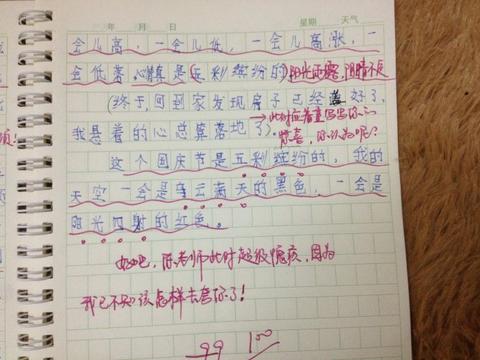 年 月 日 星期 天气
会儿高,一会儿低,一会儿高涨,一
会低落心情真是(五彩缤纷的)阳光
(终于,回到家发现房子已经盖好了,
→此时应着重写写你的
我悬着的心总算落地了)。
惊喜,你认为呢?
这个国庆节是五彩缤纷的,我的
天空一会是乌云满天的黑色,一会是
阳光四射的红色。
好吧,陈老师此时超级傻孩,因为
我已不知该怎样去夸你了!
99 100